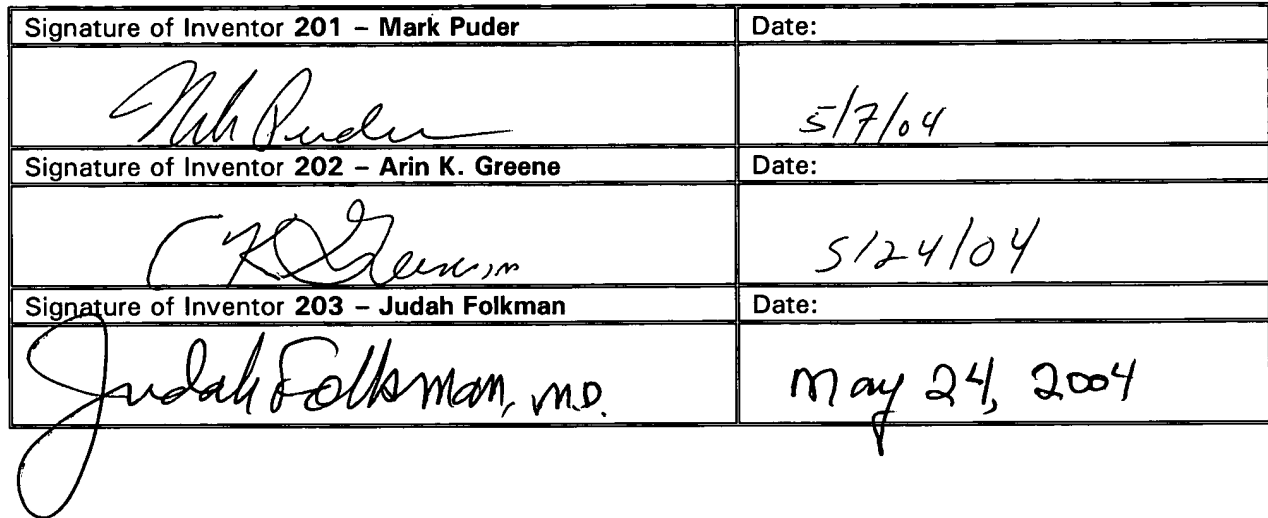 Signature of Inventor 201 – Mark Puder Date:
Puder 5/7/04
Signature of Inventor 202 – Arin K. Greene Date:
K Greene 5/24/04
Signature of Inventor 203 – Judah Folkman Date:
Judah Folkman, M.D. May 24, 2004